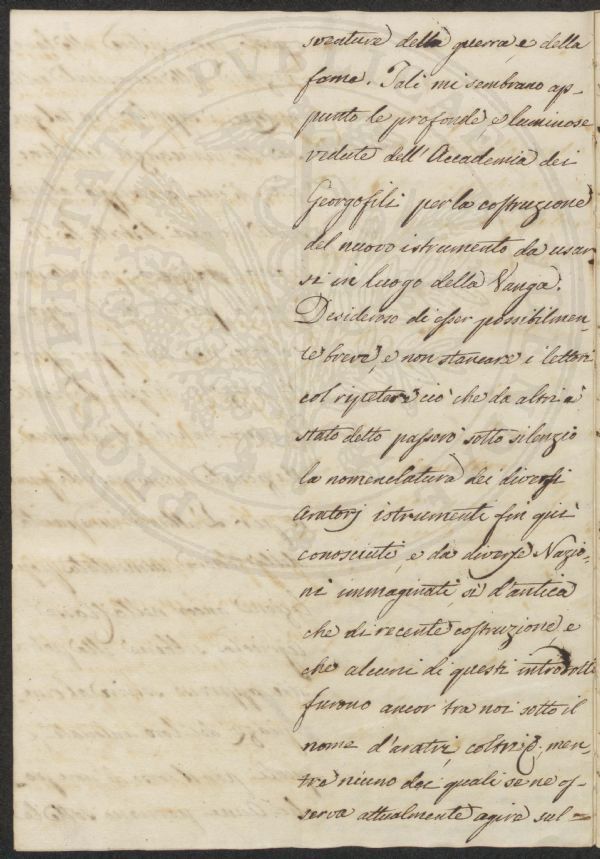 sventure della guerra, e della
fame. Tali mi sembrano ap-
punto le profonde, e luminose
vedute dell'Accademia dei
Georgofili per la costruzione
del nuovo istrumento, da usar-
si in luogo della Vanga.
Desideroso di esser possibilmen-
te breve, e non stancare i lettori
col ripetere ciò che da altri è
stato detto passerò sotto silenzio
la nomenclatura dei diversi
aratorj istrumenti fin quì
conosciuti, e da diverse Nazio-
ni immaginati, sì d'antica
che di recente costruzione, e
che alcuni di questi introdotti
furono ancor tra noi sotto il
nome d'aratri, coltri &. men-
tre niuno dei quali se ne os-
serva attualmente agire sul-